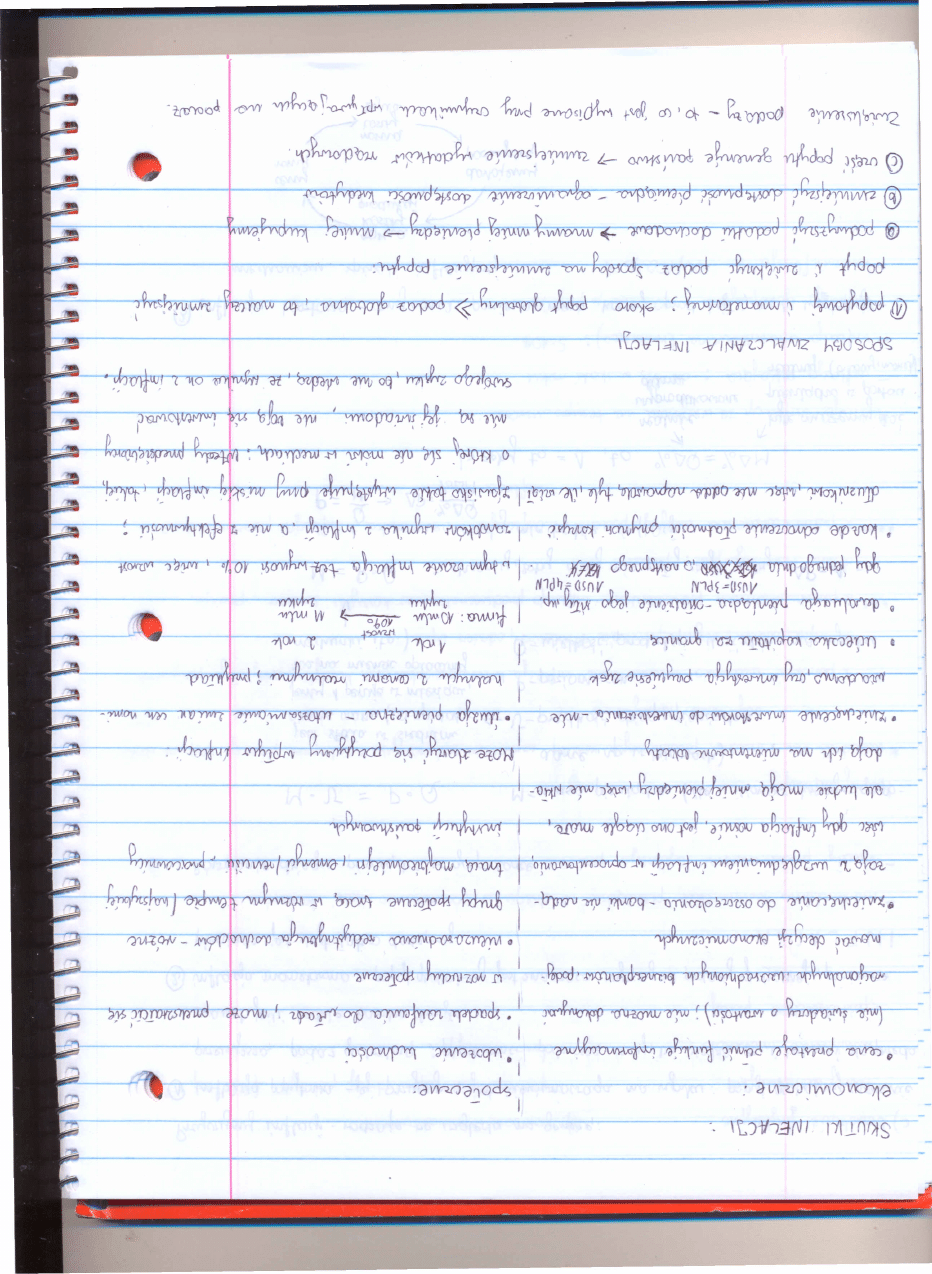 SKUTKI INFLACJI:
ekonomiczne:
• cena przestaje pełnić funkcję informacyjne
(nie świadczy o wartości); nie można dokonywać
racjonalnych i uzasadnionych biznesplanów, podej-
mować decyzji ekonomicznych
• zniechęcenie do oszczędzania - banki nie nadą-
żają z uwzględnianiem inflacji w oprocentowaniu,
więc gdy inflacja rośnie, jest ono ciągle małe,
ale ludzie mają mniej pieniędzy, więc nie wkła-
dają ich na nierentowne lokaty
• zniechęcenie inwestorów do inwestowania - nie
wiadomo czy inwestycja przyniesie zysk
• ucieczka kapitału za granicę
• dewaluacja pieniądza - osłabienie jego siły np.
1USD=3PLN 1USD=4PLN
gdy jednego dnia, a następnego
• każde odroczenie płatności przynosi korzyść
dłużnikowi, więc nie odda naprawdę tyle, ile wziął
społeczne:
• ubożenie ludności
• spadek zaufania do władz, może przekształcić się
w rozruchy społeczne
• nieuzasadniona redystrybucja dochodów - różne
grupy społeczne tracą w różnym tempie (najszybciej
tracą najbiedniejsi, emeryci/renciści, pracownicy
instytucji państwowych
Może zdarzyć się pozytywny wpływ inflacji:
• iluzja pieniężna - utożsamianie zmian cen nomi-
nalnych z cenami realnymi; przykład
1 rok 2 rok
firma: 10 mln wzrost 10% → 11 mln
zysku zysku
w tym czasie inflacja też wynosi 10%, więc wzrost
zarobków wynika z inflacji, a nie z efektywności;
zjawisko takie występuje przy niskiej inflacji, takiej,
o której się nie mówi w mediach i wtedy przedsiębiorcy
nie są jej świadomi, nie boją się inwestować
swojego zysku, bo nie wiedzą, że wynika on z inflacji.
SPOSOBY ZWALCZANIA INFLACJI
① popytowej i monetarnej; skoro popyt globalny >> podaż globalna, to należy zmniejszyć
popyt i zwiększyć podaż. Sposoby na zmniejszenie popytu:
ⓐ podwyższyć podatki dochodowe → mamy mniej pieniędzy → mniej kupujemy
ⓑ zmniejszyć dostępność pieniądza - ograniczenie dostępności kredytów
ⓒ część popytu generuje państwo → zmniejszenie wydatków rządowych.
Zwiększenie podaży - to, co jest wypisane przy czynnikach wpływających na podaż.